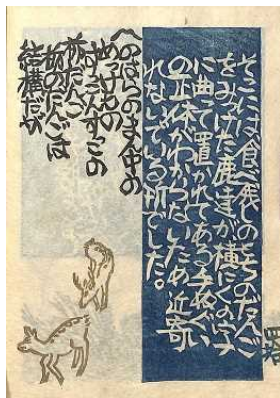 そこには食べ残しのとちのだんご
をみつけた鹿達が横にくの字
に曲って置かれてある手ぬぐい
の正体がわからないため近寄
れないでいる所でした。
〽のはらのまん中の
めっけもの
すっこんすこの
栃だんご
栃のだんごは
結構だが